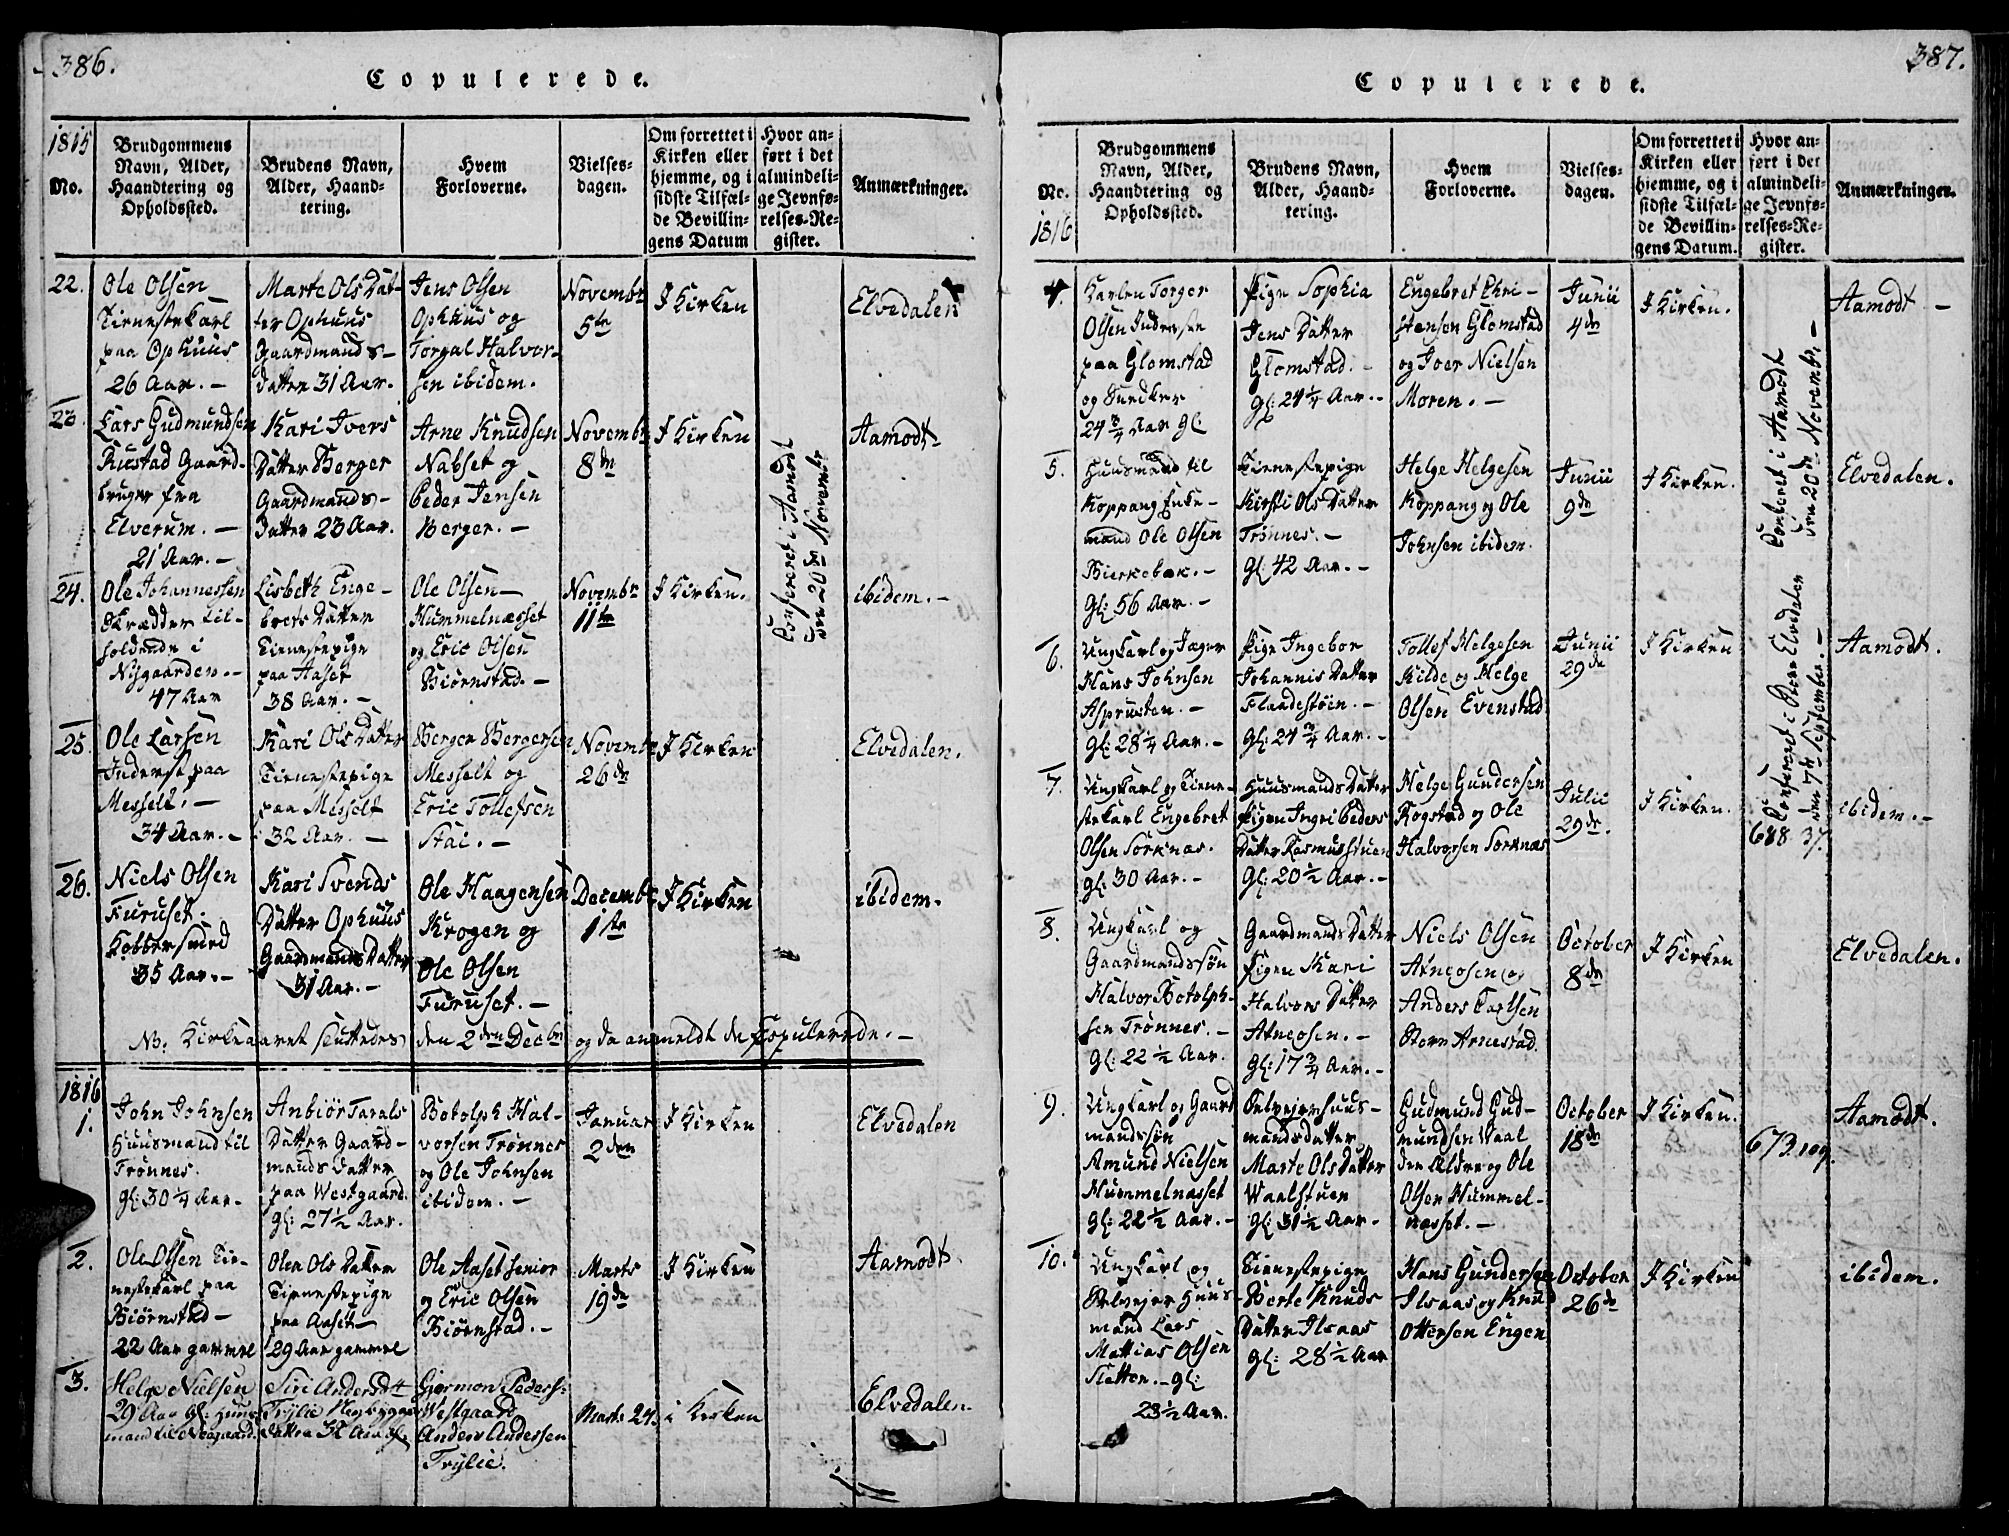 386.
Copulerede.
1815
No.
Brudgommens
Navn, Alder,
Haandtering og
Opholdssted.
Brudens Navn,
Alder, Haand-
tering.
Hvem
Forloverne.
Vielses-
dagen.
Om forrettet i
Kirken eller
hjemme, og i
sidste Tilfæl-
de Bevillin-
gens Datum
Hvor an-
ført i det
almindeli-
ge Jevnfø-
relses-Re-
gister.
Anmærkninger.
22.
Ole Olsen
Tienestekarl
paa Ophuus
26 Aar. -
Marte Ols Dat-
ter Ophuus
Gaardmands-
datter 31 Aar.
Jens Olsen
Ophuus og
Torgal Halvor-
sen ibidem.
Novembr
5te
I Kirken
Elvedalen
23.
Lars Gudmundsen
Rustad Gaard-
bruger fra
Elverum. -
21 Aar. -
Kari Ivers
Datter Berger
Gaardmands-
Datter 23 Aar.
Arne Knudsen
Nabset og
Peder Jensen
Berger. -
Novembr
8de
I Kirken
Aamodt-
24.
Ole Johannessen
Skrædder til-
holdende i
Nygaarden. -
47 Aar
Lisbeth Enge-
brets Datter
Tienestepige
paa Aaset
38 Aar. -
Ole Olsen
Hummelnæsset
og Eric Olsen
Biørnstad. -
Novembr
11te
I Kirken.
ibidem. -
Confereret i Aamodt
den 20de Novembr
25.
Ole Larsen
Inderst paa
Messelt. -
34 Aar. -
Kari Ols Datter
Tienestepige
paa Messelt
32 Aar. -
Berger Bergersen
Messelt og
Eric Tollefsen
Stai. -
Novembr
26de
I Kirken
Elvedalen.
26.
Niels Olsen
Furuset.
Kobbersmed
35 Aar. -
Kari Svends
Datter Ophuus
Gaardmands Datter
31 Aar. -
Ole Haagensen
Krogen og
Ole Olsen
Furuset. -
Decembr
1ste
I Kirken
ibidem.
NB. Kirkeaaret sluttedes den 2den Decbr og da anmeldt de Copulerede. -
1816
1.
John Johnsen
Huusmand til
Trønnes.
gl: 30 1/4 Aar.
Anbiør Tarals
Datter Gaard-
mands Datter
paa Westgaard
gl: 27 1/2 Aar.
Botolph Hal-
vorsen Trønnes
og Ole Johnsen
ibidem. -
Januar
2den
I Kirken
Elvedalen
2.
Ole Olsen Tie-
nestekarl paa
Biørnstad -
22 Aar gammel
Olea Ols Datter
Tienestepige
paa Aaset -
29 Aar gammel
Ole Aaset senior
og Eric Olsen
Biørnstad. -
Marts
19de
I Kirken
Aamodt.
3.
Helge Nielsen
29 Aar gl. Huus-
mand til
Siri Andersdtt
Trylie
Datter
Gjermon Peders:
Westgaard
Anders Andersen
Trylie.
Marts 24.
i Kirken
Elvedalen.
387.
Copulerede.
No.
1816
Brudgommens
Navn, Alder,
Haandtering og
Opholdssted.
Brudens Navn,
Alder, Haand-
tering.
Hvem
Forloverne.
Vielses-
dagen.
Om forrettet i
Kirken eller
hjemme, og i
sidste Tilfæl-
de Bevillin-
gens Datum.
Hvor an-
ført i det
almindeli-
ge Jevnfø-
relses-Re-
gister.
Anmærkninger.
4.
Karlen Torger
Olsen Inderste
paa Glomstad
og Snedker
24 3/4 Aar gl:
Pige Sophia
Jens Datter
Glomstad. -
gl: 24 1/4 Aar. -
Engebret Chri-
stensen Glomstad
og Iver Nielsen
Moren. -
Junii
4de
I Kirken.
Aamodt -
5.
Huusmand til
Koppang Enke-
mand Ole Olsen
Bierkebæk. -
gl: 56 Aar. -
Tienestepige
Kirsti Ols Datter
Trønnes. -
gl: 42 Aar. -
Helge Helgesen
Koppang og Ole
Johnsen ibidem.
Junii
9de
I Kirken.
Elvedalen.
Confereret i Aamodt
den 20de Novembr. -
6.
Ungkarl og Jæger
Hans Johnsen
Asprusten. -
gl: 28 1/4 Aar. -
Pige Ingebor
Johannis Datter
Flaadestøen. -
gl: 24 3/4 Aar. -
Tollef Helgesen
Kilde og Helge
Olsen Evenstad
Junii
29de
I Kirken
Aamodt.
7.
Ungkarl og Tiene-
stekarl Engebret
Olsen Sorknæs.
gl: 30 Aar. -
Huusmands Datter
Pigen Ingri Peders
Datter Rasmusstuen
gl: 20 1/2 Aar. -
Helge Gundersen
Rogstad og Ole
Halvorsen Sorknæs
Julii
29de.
I Kirken.
Confereret i Store Elvdalen
den 7de September. -
688. 37.
ibidem. -
8.
Ungkarl og
Gaardmandssøn
Halvor Botolph-
sen Trønnes. -
gl: 22 1/2 Aar.
Gaardmands Datter
Pigen Kari
Halvors Datter
Atneosen. -
gl: 17 3/4 Aar. -
Niels Olsen
Atneosen og
Anders Carlsen
Storn Arnestad.
October
8de
I Kirken
Elvedalen.
9.
Ungkarl og Gaard
mandssøn
Amund Nielsen
Hummelnæsset
gl: 22 1/2 Aar. -
Selvejerhuus-
mandsdatter
Marte Ols Datter
Waalstuen
gl: 31 1/2 Aar.
Gudmund Gud-
mundsen Waal
den Ældre og Ole
Olsen Hummel-
næsset. -
October
18de
I Kirken.
673. 109.
Aamodt.
10.
Ungkarl og
Selvejer Huus-
mand Lars
Mattias Olsen
Sletten. - gl:
23 1/2 Aar.
Tienestepige
Berte Knuds
Datter Ilsaas
gl: 28 1/2 Aar
Hans Gundersen
Ilsaas og Knud
Ottersen Engen
October
26de
I Kirken
ibidem.